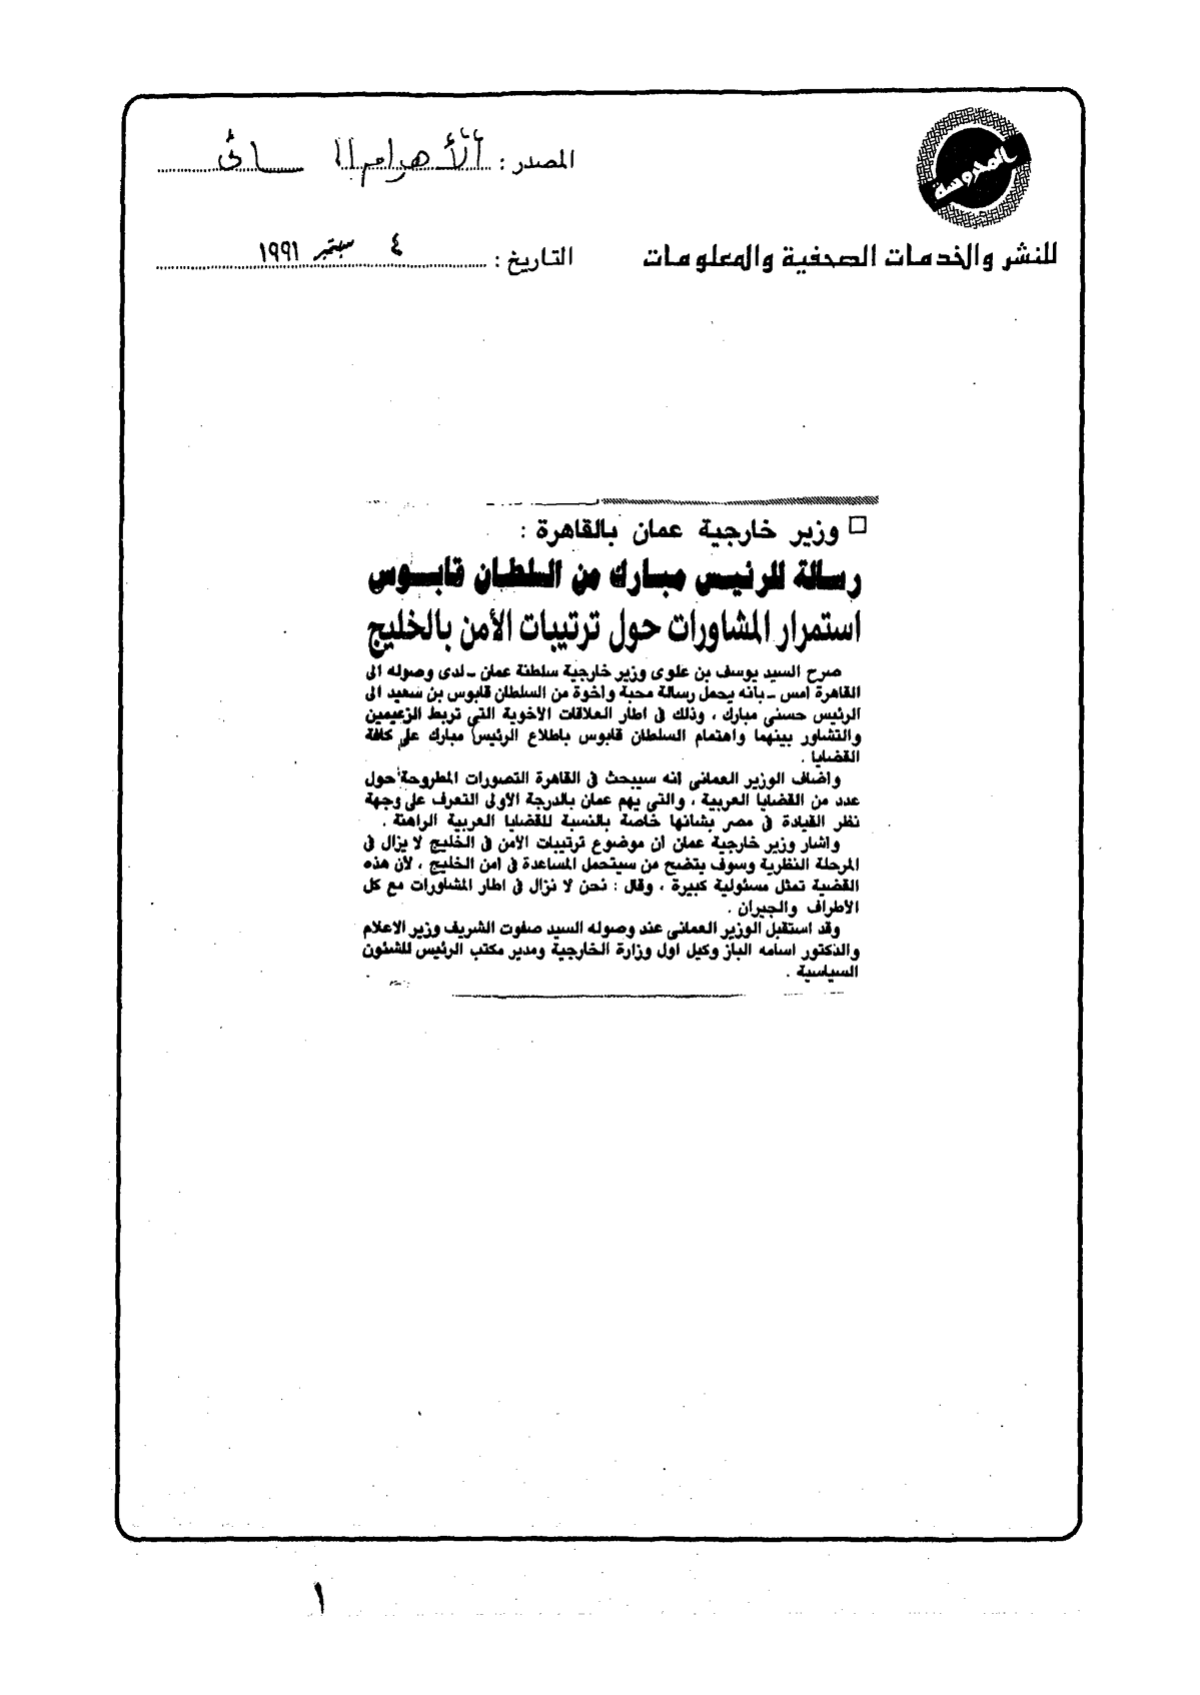 المحروسة
المصدر : الأهرام المسائى
للنشر والخدمات الصحفية والمعلومات
التاريخ : ٤ سبتمبر ١٩٩١
□ وزير خارجية عمان بالقاهرة :
رسالة للرئيس مبارك من السلطان قابوس
استمرار المشاورات حول ترتيبات الأمن بالخليج
صرح السيد يوسف بن علوى وزير خارجية سلطنة عمان ـ لدى وصوله الى
القاهرة امس ـ بأنه يحمل رسالة محبة واخوة من السلطان قابوس بن سعيد الى
الرئيس حسنى مبارك ، وذلك فى اطار العلاقات الاخوية التى تربط الزعيمين
والتشاور بينهما واهتمام السلطان قابوس باطلاع الرئيس مبارك على كافة
القضايا .
واضاف الوزير العمانى انه سيبحث فى القاهرة التصورات المطروحة حول
عدد من القضايا العربية ، والتى يهم عمان بالدرجة الاولى التعرف على وجهة
نظر القيادة فى مصر بشانها خاصة بالنسبة للقضايا العربية الراهنة .
واشار وزير خارجية عمان ان موضوع ترتيبات الأمن فى الخليج لا يزال فى
المرحلة النظرية وسوف يتضح من سيتحمل المساعدة فى امن الخليج ، لأن هذه
القضية تمثل مسئولية كبيرة ، وقال : نحن لا نزال فى اطار المشاورات مع كل
الاطراف والجيران .
وقد استقبل الوزير العمانى عند وصوله السيد صفوت الشريف وزير الاعلام
والدكتور اسامه الباز وكيل اول وزارة الخارجية ومدير مكتب الرئيس للشئون
السياسية .
١